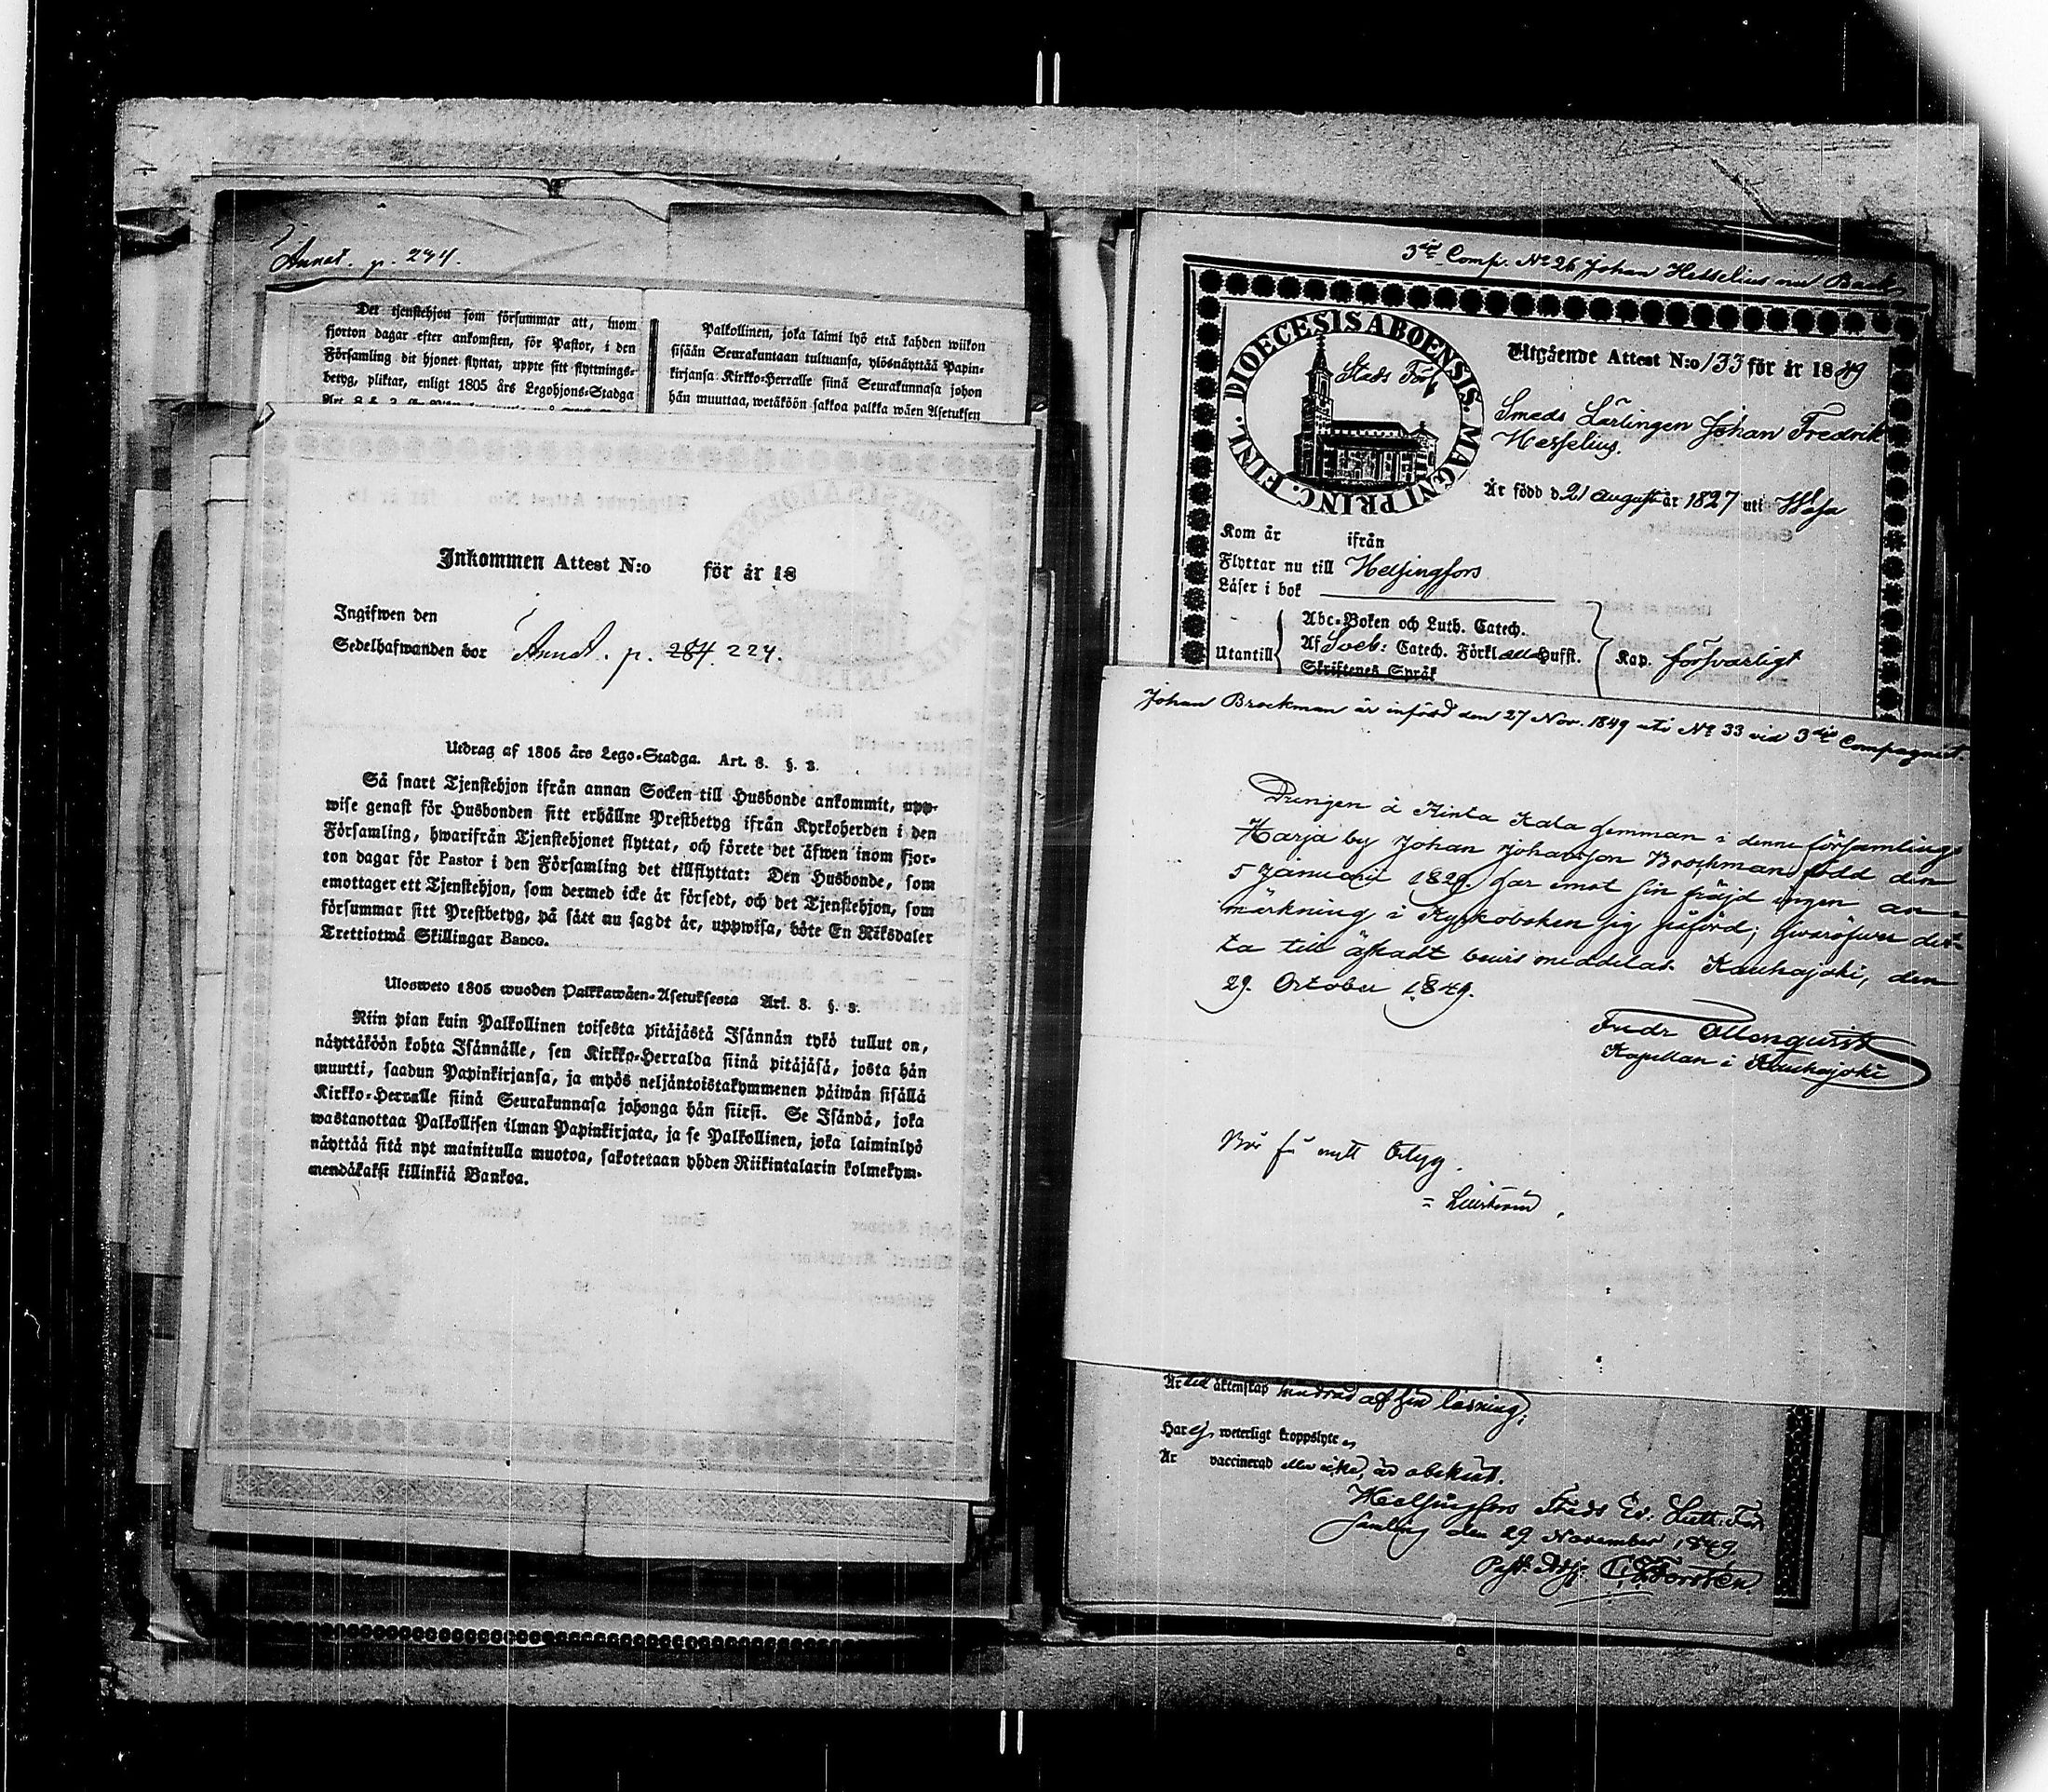 Annat. p. 234.
Det tjenstehjon som försummar att, inom
fjorton dagar efter ankomsten, för Pastor, i den
Församling dit hjonet flyttat, uppte sitt flyttnings-
betyg, pliktar, enligt 1805 års Legohjons-Stadga
Palkollinen, joka laimi lyö että kahden wiikon
sisään Seurakuntaan tultuansa, ylösnäyttää Papin-
kirjansa Kirkko-Herralle siinä Seurakunnasa johon
hän muuttaa, wetäköön sakkoa palkka wäen Asetuksen
Inkommen Attest N:o för år 18
Ingifwen den
Sedelhafwanden bor Annat. p. 284. 224.
Utdrag af 1805 års Lego-Stadga. Art. 8. §. 3.
Så snart Tjenstehjon ifrån annan Socken till Husbonde ankommit, upp-
wise genast för Husbonden sitt erhållne Prestbetyg ifrån Kyrkoherden i den
Församling, hwarifrån Tjenstehjonet flyttat, och förete det äfwen inom fjor-
ton dagar för Pastor i den Församling det tillflyttat: Den Husbonde, som
emottager ett Tjenstehjon, som dermed icke är försedt, och det Tjenstehjon, som
försummar sitt Prestbetyg, på sätt nu sagdt är, uppwisa, böte En Riksdaler
Trettiotwå Skillingar Banco.
Ulosweto 1805 wuoden Palkkawäen-Asetuksesta Art. 8. §. 3.
Niin pian kuin Palkollinen toisesta pitäjästä Isännän tykö tullut on,
näyttäköön kohta Isännälle, sen Kirkko-Herralda siinä pitäjäsä, josta hän
muutti, saadun Papinkirjansa, ja myös neljäntoistakymmenen päiwän sisällä
Kirkko-Herralle siinä Seurakunnasa johonga hän siirsi. Se Isändä, joka
wastanottaa Palkollisen ilman Papinkirjata, ja se Palkollinen, joka laiminlyö
näyttää sitä nyt mainitulla muotoa, sakotetaan yhden Riikintalarin kolmekym-
mendäkaksi killinkiä Bankoa.
3die Comp. No 26 Johan Hesselius nu Back
DIOECESIS ABOENSIS. MAGNI PRINC. FINL.
Stads För
Utgående Attest N:o 133 för år 1849
Smeds Lärlingen Johan Fredrik
Hesselius.
Är född d 21 August år 1827 uti Wasa
Kom år ifrån
Flyttar nu till Helsingfors
Läser i bok
Utantill
Abc-Boken och Luth. Catech.
Af Sveb: Catech. Förkl alla Hufst.
Skriftenes Språk
Kap. försvarligt
Johan Brockman är införd den 27 Nov. 1849 uti No 33 vid 3die Compagniet.
Drengen å Kinta Kala hemman i denne församlings
Harja by Johan Johansson Brockman, född den
5 Januarii 1829. har emot sin fräjd ingen an-
märkning i Kyrkoboken sig påförd; hvaröfver det-
ta till äskadt bevis meddelas. Kauhajoki, den
29. October 1849.
Fredr Ollonqvist
Kapellan i Kauhajoki
Bör få nytt betyg.
Är till äktenskap hindrad af sin läsning;
Har ej weterligt kroppslyte
Är vaccinerad eller icke, är obekant.
Helsingfors Stads Ev. Luth. För
samling den 29 November 1849
Past. Adj. Forstén